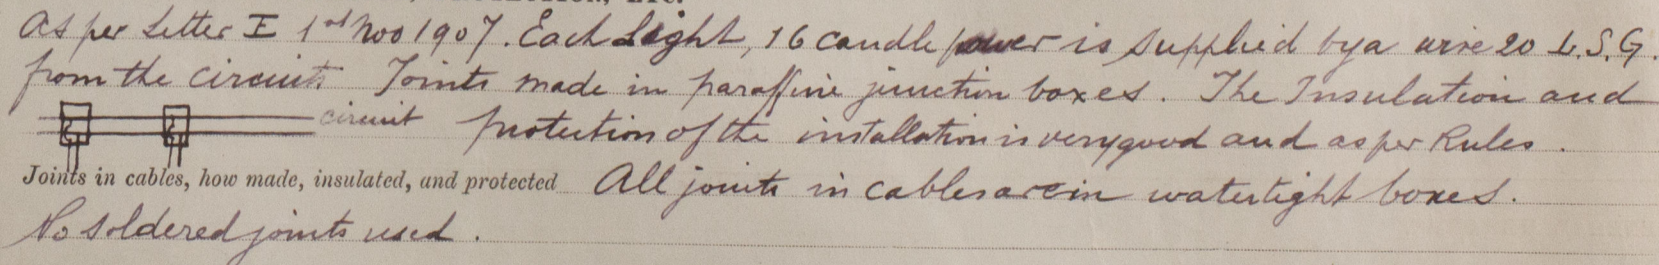 As per Letter E 1st Nov 1907. Each Light, 16 candle power is supplied by a wire 20 L.S.G.
from the circuits Joints made in paraffine junction boxes. The Insulation and
circuit protection of the installation is very good and as per Rules.
Joints in cables, how made, insulated, and protected All joints in cables are in watertight boxes.
No soldered joints used.